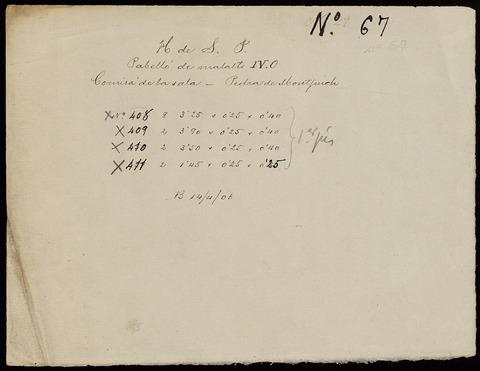 Nº 67
Nº 67
H de S. P.
Pabelló de malalts IV.O
Cornisa de la sala — Pedra de Montjuich.
X Nº 408 8 3'25 x 0'25 x 0'40
X 409 2 3'90 x 0'25 x 0'40
X 410 2 3'50 x 0'25 x 0'40
X 411 2 1'45 x 0'25 x 0'25
1er pis
B 14/4/06